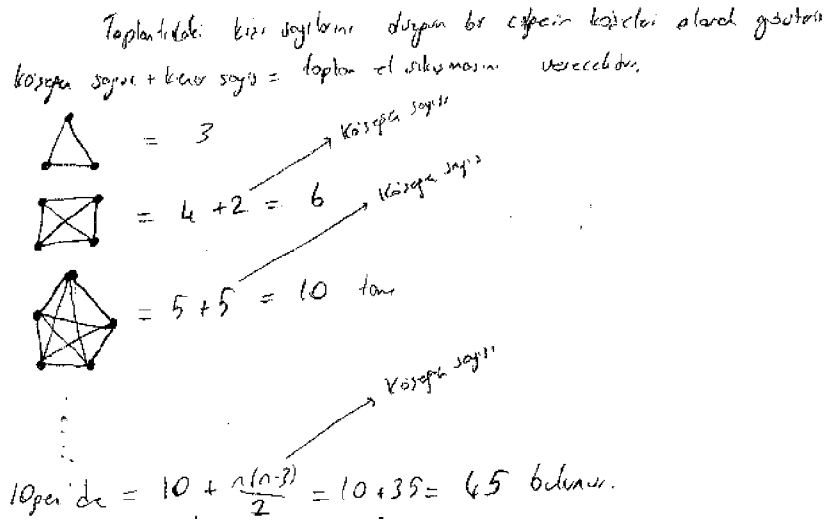 Toplantıdaki kişi sayılarını düzgün bir çokgenin köşeleri olarak
köşegen sayısı + kenar sayısı = toplam el sıkışmasını verecektir.
= 3
Köşegen sayısı
= 4 + 2 = 6
Köşegen sayısı
= 5 + 5 = 10 tane
Köşegen sayısı
10gen'de = 10 + n(n-3)/2 = 10 + 35 = 45 bulunur.